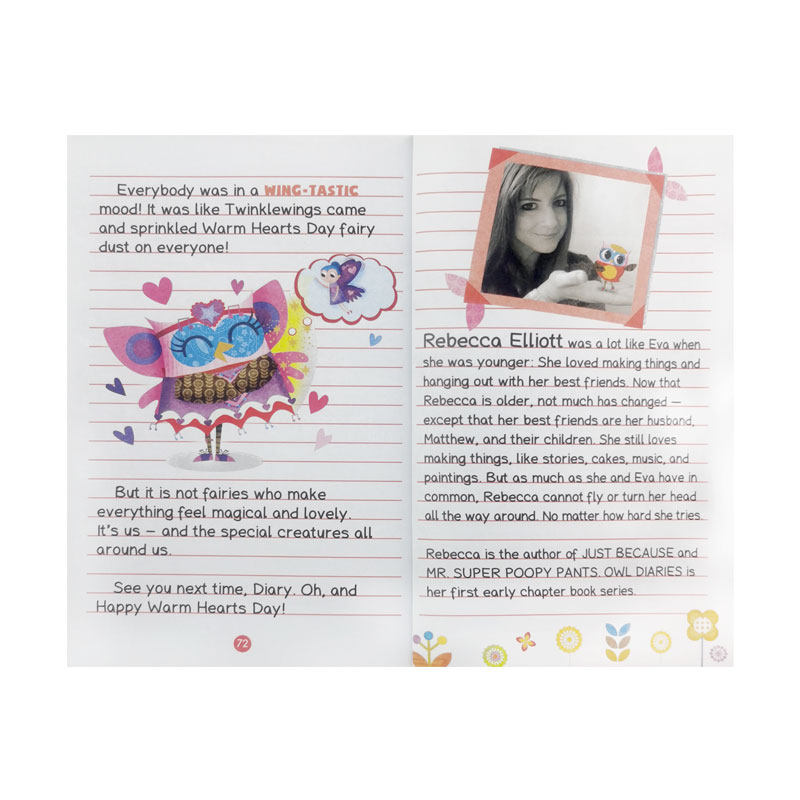 Everybody was in a WING-TASTIC
mood! It was like Twinklewings came
and sprinkled Warm Hearts Day fairy
dust on everyone!
But it is not fairies who make
everything feel magical and lovely.
It's us – and the special creatures all
around us.
See you next time, Diary. Oh, and
Happy Warm Hearts Day!
72
Rebecca Elliott was a lot like Eva when
she was younger: She loved making things and
hanging out with her best friends. Now that
Rebecca is older, not much has changed –
except that her best friends are her husband,
Matthew, and their children. She still loves
making things, like stories, cakes, music, and
paintings. But as much as she and Eva have in
common, Rebecca cannot fly or turn her head
all the way around. No matter how hard she tries.
Rebecca is the author of JUST BECAUSE and
MR. SUPER POOPY PANTS. OWL DIARIES is
her first early chapter book series.